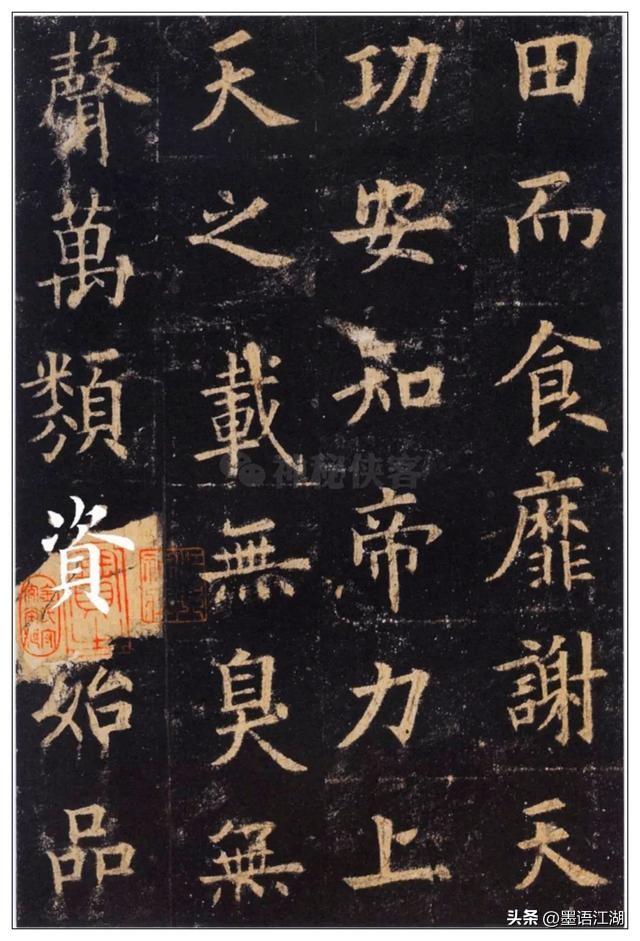 田而食靡謝天
功安知帝力上
天之載無臭無
聲萬類資始品
神秘侠客
头条 @墨语江湖